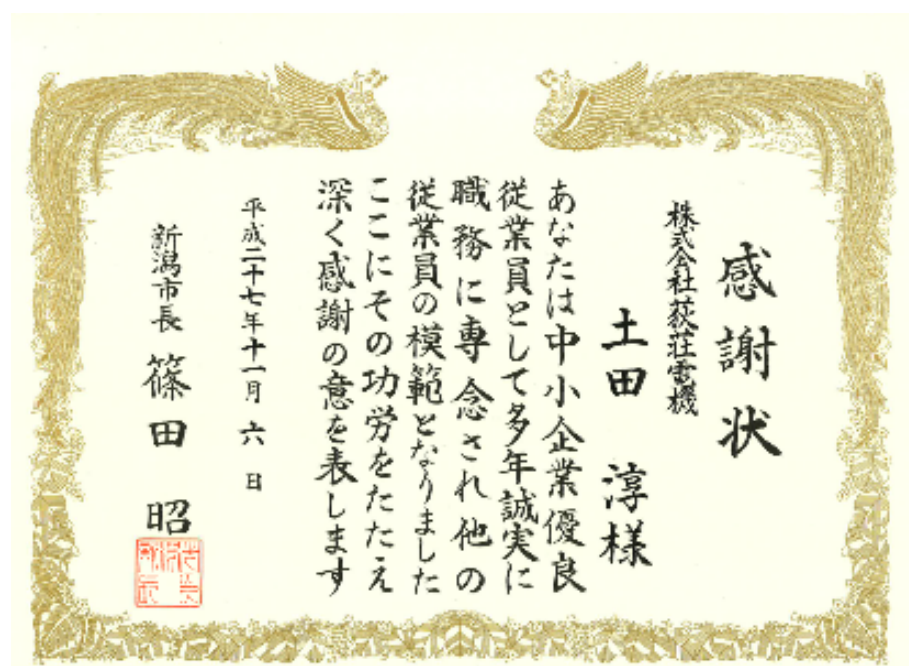 感謝状
株式会社荻荘電機
土田 淳様
あなたは中小企業優良
従業員として多年誠実に
職務に専念され他の
従業員の模範となりました
ここにその功労をたたえ
深く感謝の意を表します
平成二十七年十一月六日
新潟市長 篠田 昭